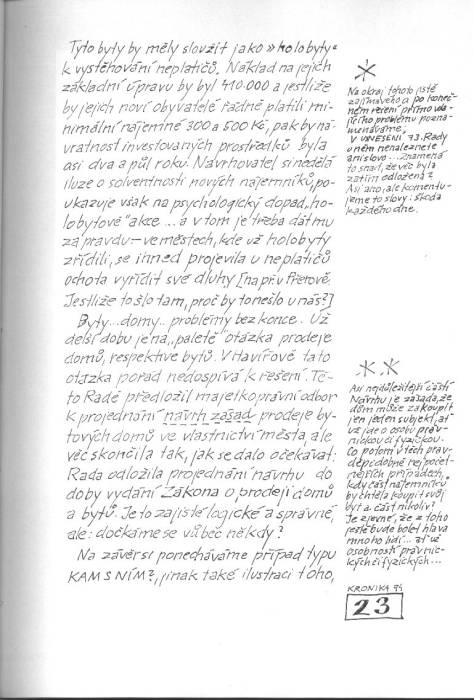 Tyto byty by měly sloužit jako »holobyty«
k vystěhování neplatičů. Náklad na jejich
základní úpravu by byl 410.000 a jestliže
by jejich noví obyvatelé řádně platili mi-
nimální nájemné 300 a 500 Kč, pak by ná-
vratnost investovaných prostředků byla
asi dva a půl roku. Navrhovatel si nedělá
iluze o solventnosti nových nájemníků, po-
ukazuje však na psychologický dopad „ho-
lobytové" akce ... a v tom je třeba dát mu
za pravdu – ve městech, kde už holobyty
zřídili, se ihned projevila u neplatičů
ochota vyřídit své dluhy [např. v Přerově.
Jestliže to šlo tam, proč by to nešlo u nás?]
Byty... domy.. problémy bez konce. Už
delší dobu je na „paletě" otázka prodeje
domů, respektive bytů. V Havířově tato
otázka pořád nedospívá k řešení. Té-
to Radě předložil majetkoprávní odbor
k projednání návrh zásad prodeje by-
tových domů ve vlastnictví města, ale
věc skončila tak, jak se dalo očekávat:
Rada odložila projednání návrhu do
doby vydání Zákona o prodeji domů
a bytů. Je to zajisté logické a správné,
ale: dočkáme se vůbec někdy?
Na závěrsi ponecháváme případ typu
KAM S NÍM?, jinak také ilustraci toho,
*
Na okraj tohoto jistě
zajímavého a po koneč-
ném řešení přímo vola-
jícího problému pozna-
menáváme.
V USNESENÍ 73. Rady
o něm nenaleznete
ani slovo... Znamená
to snad, že věc byla
zatím odložena?
Asi ano, ale komentu-
jeme to slovy: škoda
každého dne.
* *
Asi nejdůležitější částí
Návrhu je zásada, že
dům může zakoupit
jen jeden subjekt, ať
už jde o osobu práv-
nickou či fyzickou.
Co potom v těch prav-
děpodobně nejpočet-
nějších případech,
kdy část nájemníků
by chtěla koupit svůj
byt a část nikoliv?
Je zjevné, že z toho
ještě bude bolet hlava
mnoho lidí... ať už
osobností právnic-
kých či fyzických...
KRONIKA 94
23